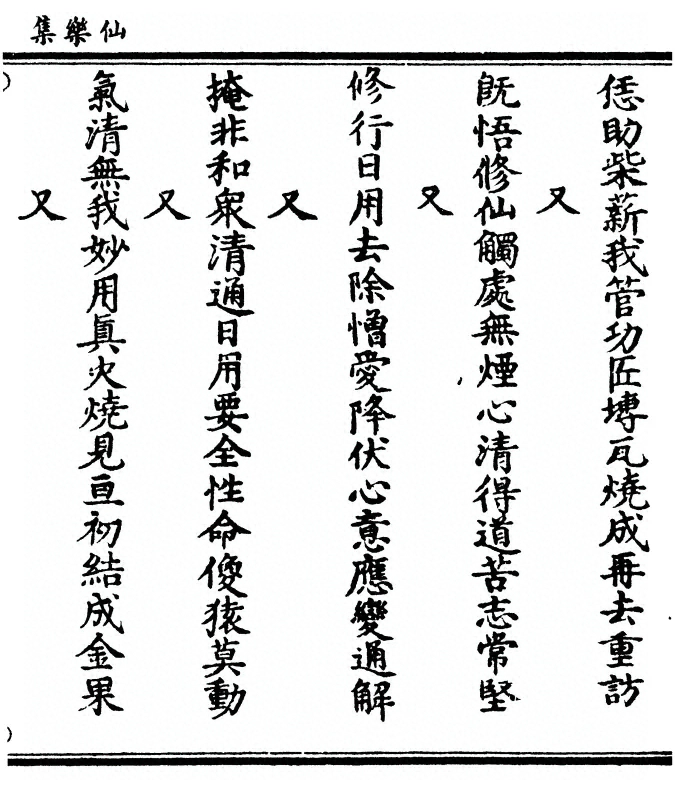 仙樂集
恁助柴薪我管功匠塼瓦燒成再去重訪
又
既悟修仙觸處無煙心清得道苦志常堅
又
修行日用去除憎愛降伏心意應變通解
又
掩非和眾清通日用要全性命傻猿莫動
又
氣清無我妙用眞火燒見亘初結成金果
又